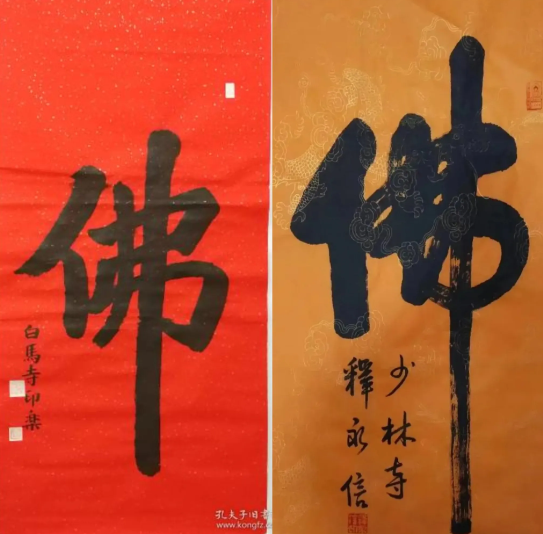 佛
白馬寺印樂
佛
少林寺
釋永信
孔夫子旧书
www.kongfz.c